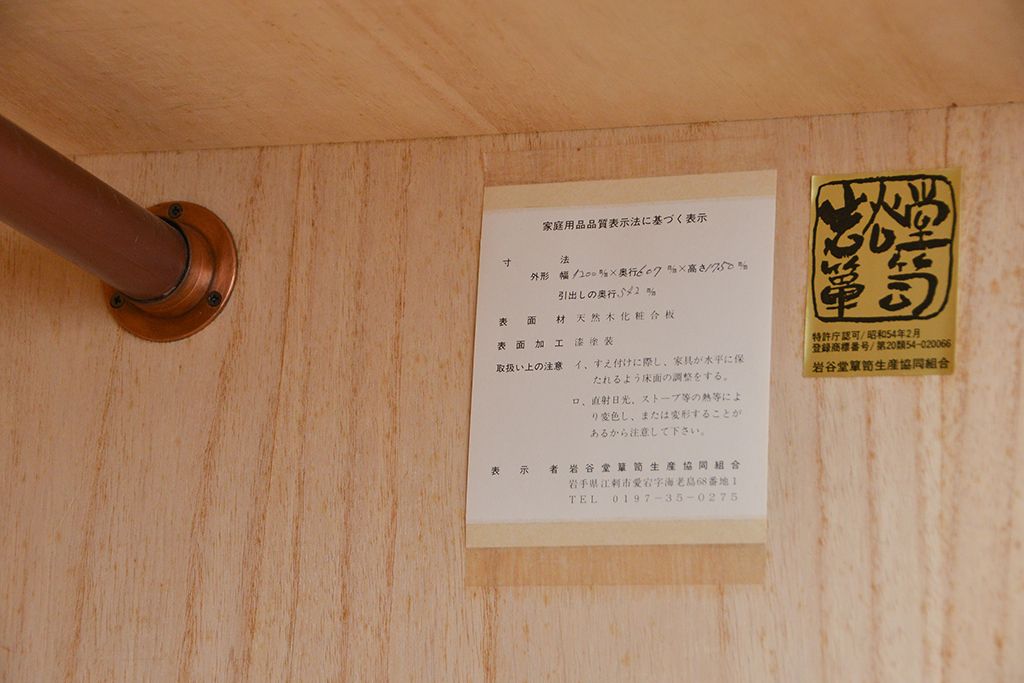 家庭用品品質表示法に基づく表示
寸 法
外形 幅1200m/m×奥行607m/m×高さ1750m/m
引出しの奥行542m/m
表面材 天然木化粧合板
表面加工 漆塗装
取扱い上の注意 イ、すえ付けに際し、家具が水平に保
たれるよう床面の調整をする。
ロ、直射日光、ストーブ等の熱等によ
り変色し、または変形することが
あるから注意して下さい。
表示者 岩谷堂簞笥生産協同組合
岩手県江刺市愛宕字海老島68番地1
TEL 0197-35-0275
岩谷堂
簞笥
特許庁認可/昭和54年2月
登録商標番号/第20類54-020066
岩谷堂簞笥生産協同組合